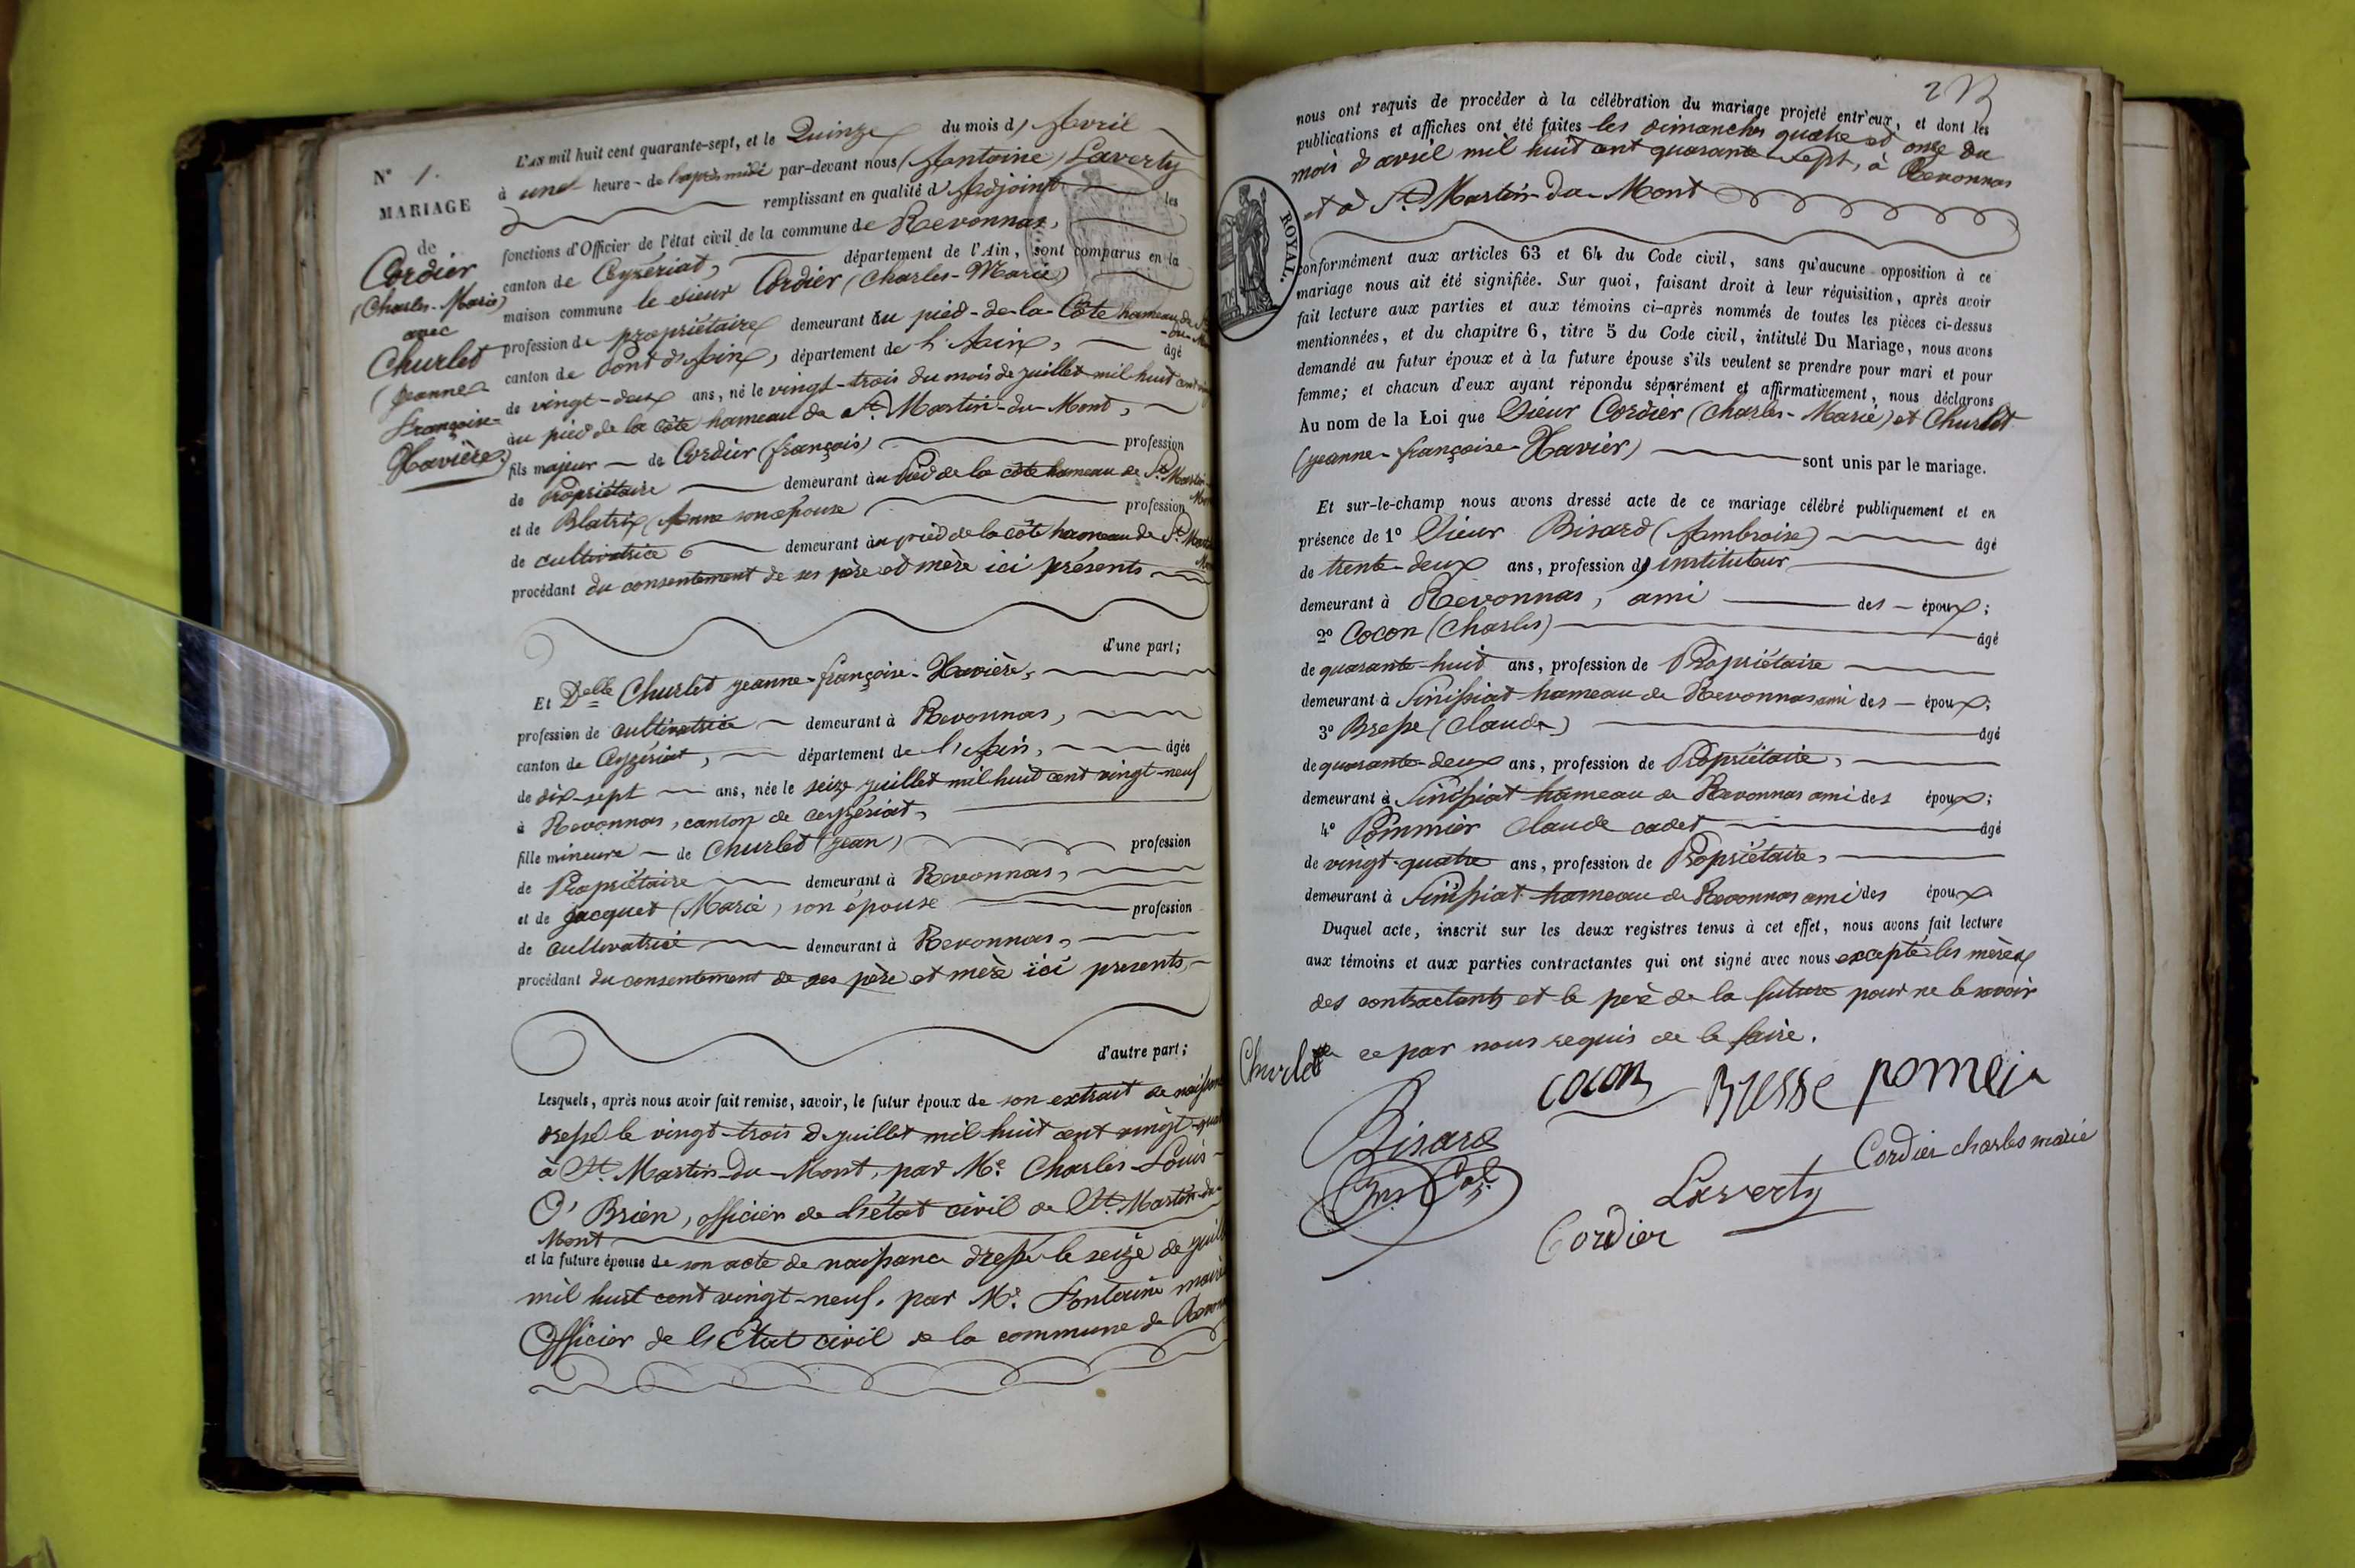 N° 1.
MARIAGE
de
Cordier
(Charles-Marie)
avec
Churlet
(Jeanne
Françoise-
Xavière)
L'AN mil huit cent quarante-sept, et le Quinze du mois d'Avril
à une heure de l'après midi par-devant nous (Antoine) Laverty
remplissant en qualité d'Adjoint les
fonctions d'Officier de l'état civil de la commune de Revonnas,
canton de Ceyzériat, département de l'Ain, sont comparus en la
maison commune le sieur Cordier (Charles-Marie)
profession de propriétaire demeurant au pied-de-la-Côte hameau de
canton de Pont d'Ain, département de l'Ain, âgé
de vingt-deux ans, né le vingt-trois du mois de juillet mil huit cent
au pied de la côte hameau de St. Martin-du-Mont,
fils majeur de Cordier (françois) profession
de Propriétaire demeurant au Pied de la côte hameau de St. Martin
et de Blatrix Anne son épouse profession
de cultivatrice demeurant au pied de la côte hameau de St.
procédant du consentement de ses père et mère ici présents
d'une part;
Et Delle Churlet jeanne-françoise-Xavière,
profession de cultivatrice demeurant à Revonnas,
canton de Ceyzériat, département de l'Ain, âgée
de dix-sept ans, née le seize juillet mil huit cent vingt-neuf
à Revonnas, canton de ceyzériat,
fille mineure de Churlet (jean) profession
de Propriétaire demeurant à Revonnas,
et de Jacquet (Marie) son épouse profession
de cultivatrice demeurant à Revonnas,
procédant du consentement de ses père et mère ici presents
d'autre part;
Lesquels, après nous avoir fait remise, savoir, le futur époux de son extrait de
dressé le vingt-trois d juillet mil huit cent vingt
à St. Martin-du-Mont, par Mr. Charles-Louis
O' Brien, officier de l'état civil de St. Martin-du-
Mont
et la future épouse de son acte de naissance dressé le seize de
mil huit cent vingt-neuf, par Mr. Fontaine maire
Officier de l'Etat civil de la commune de
nous ont requis de procéder à la célébration du mariage projeté entr'eux, et dont les
publications et affiches ont été faites les dimanches quatre et onze du
mois d'avril mil huit cent quarante-sept, à Revonnas
et à St. Martin-du-Mont
ROYAL.
conformément aux articles 63 et 64 du Code civil, sans qu'aucune opposition à ce
mariage nous ait été signifiée. Sur quoi, faisant droit à leur réquisition, après avoir
fait lecture aux parties et aux témoins ci-après nommés de toutes les pièces ci-dessus
mentionnées, et du chapitre 6, titre 5 du Code civil, intitulé Du Mariage, nous avons
demandé au futur époux et à la future épouse s'ils veulent se prendre pour mari et pour
femme; et chacun d'eux ayant répondu séparément et affirmativement, nous déclarons
Au nom de la Loi que Sieur Cordier (Charles-Marie) et Churlet
(jeanne-françoise-Xavier) sont unis par le mariage.
Et sur-le-champ nous avons dressé acte de ce mariage célébré publiquement et en
présence de 1° Sieur Bisard (Ambroise) âgé
de trente-deux ans, profession d'instituteur
demeurant à Revonnas, ami des époux;
2° Cocon (Charles) âgé
de quarante-huit ans, profession de Propriétaire
demeurant à Sinissiat hameau de Revonnas ami des époux;
3° Bresse (Claude) âgé
de quarante-deux ans, profession de Propriétaire,
demeurant à Sinissiat hameau de Revonnas ami des époux;
4° Pommier Claude cadet âgé
de vingt-quatre ans, profession de Propriétaire,
demeurant à Sinissiat hameau de Revonnas ami des époux
Duquel acte, inscrit sur les deux registres tenus à cet effet, nous avons fait lecture
aux témoins et aux parties contractantes qui ont signé avec nous excepté les mères
des contractants et le père de la future pour ne le savoir
de ce par nous requis de le faire.
Churlet
cocon Bresse pomeir
Bisard
Cordier charles marie
Laverty
Cordier